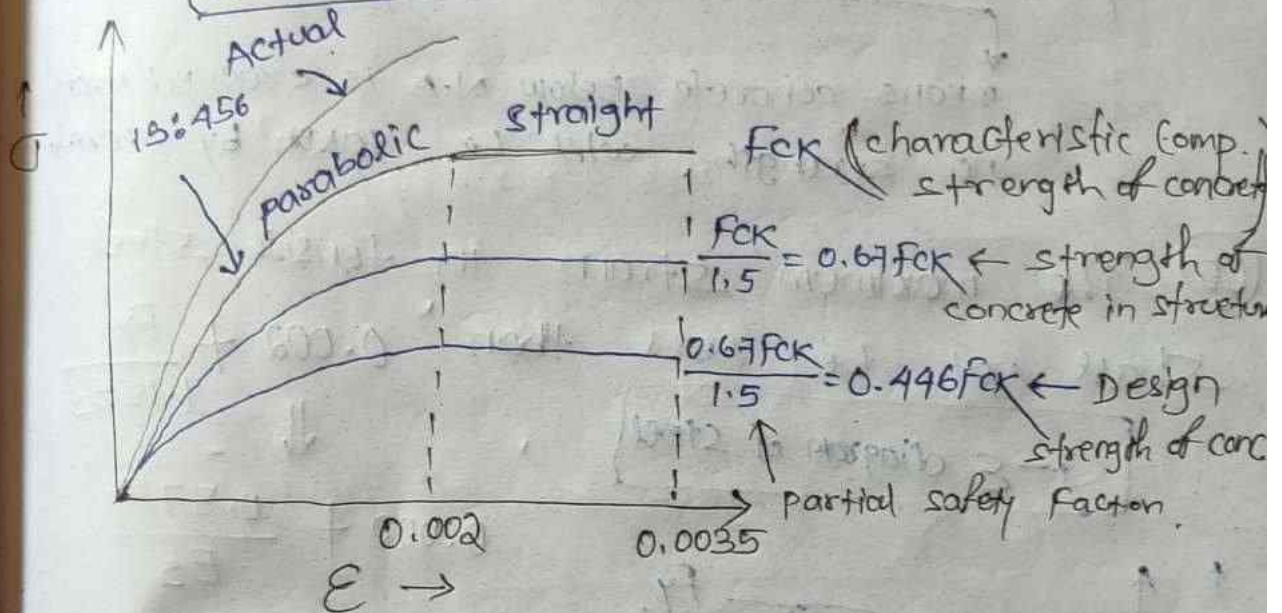 Actual
IS: 456
parabolic
straight
σ →
FCK (characteristic Comp.
strength of concret
FCK / 1.5 = 0.67 FCK ← strength of
concrete in structur
0.67 FCK / 1.5 = 0.446 FCK ← Design
strength of conc
partial safety Factor.
0.002
0.0035
ε →